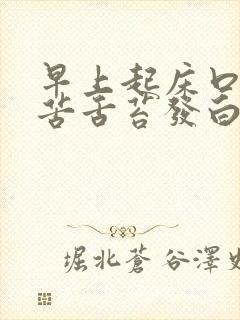 早上起床口
苦舌苔發白
堀北蒼 谷澤